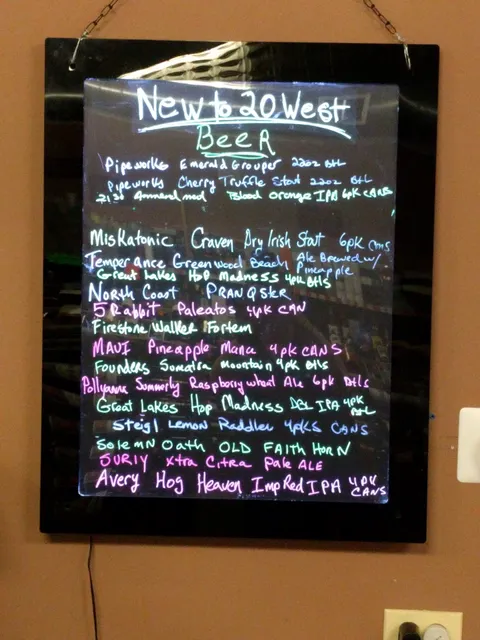 New to 20 West
BEER
Pipeworks Emerald Grouper 22oz Btl
Pipeworks Cherry Truffle Stout 22oz BTL
21st Ammendmed Blood Orange IPA 6pk CANS
Miskatonic Craven Dry Irish Stout 6pk CANS
Temperance Greenwood Beach Ale Brewed w/ Pineapple
Great Lakes Hop Madness 4pk Btls
North Coast PRANQSTER
5 Rabbit Paletas 4pk CAN
Firestone Walker Fortem
MAUI Pineapple Mana 4pk CANS
Founders Sumatra Mountain 4pk Btls
Pollyanna Summerly Raspberry wheat Ale 6pk Btls
Great Lakes Hop Madness Dbl IPA 4pk Btl
Steigl Lemon Raddler 4pks CANS
Solemn Oath OLD FAITH HORN
SURLY Xtra Citra Pale ALE
Avery Hog Heaven Imp Red IPA 4pk CANS